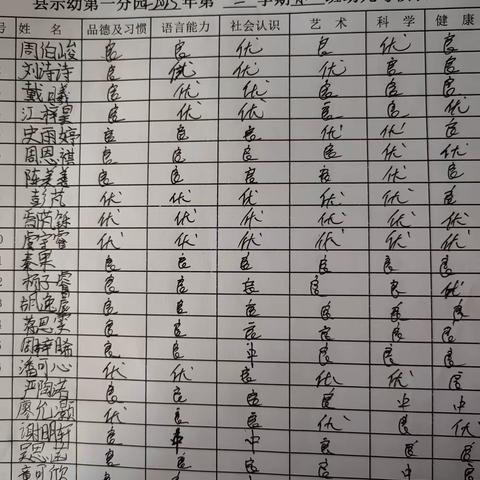 县示幼第一分园2015年第二学期
号 姓名 品德及习惯 语言能力 社会认识 艺术 科学 健康
周伯峻 良 良 优 良 优 良
刘诗诗 良 优 优 优 良 良
戴曦 良 优 优 良 良 良
江梓昊 良 优 优 良 良 优
史雨婷 良 良 良 优 优 良
周恩淇 良 良 良 良 优 优
陈美善 良 良 良 良 优 良
彭芃 优 优 优 优 优 良
优 优 优 优 优 优
0 优 优 优 优 优 优
1 秦果 良 良 良 良 良 良
2 杨子睿 良 良 良 良 良 优
3 胡逸晨 良 良 良 良 良 良
蒋思 良 良 良 良 良 良
周梓晞 良 良 中 良 良 良
潘可心 优 优 良 优 优 良
严陶 良 良 良 良 中 中
廖允灏 优 良 良 优 良 优
谢明轩 良 中 中 良 良 良
吴思 良 良 良 良
童可欣 良 良 良 中 良